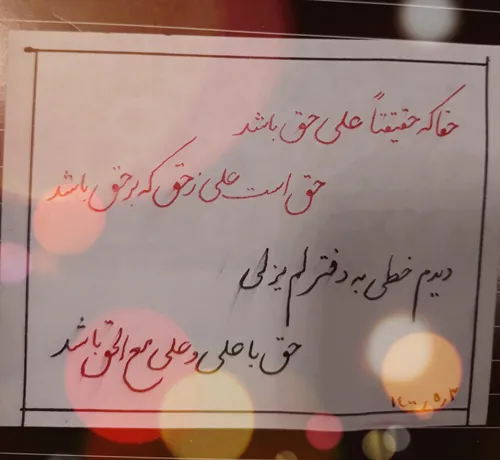 حقا که حقیقتاً علی حق باشد
حق است علی ز حق که بر حق باشد
دیدم خطی به دفتر لم یزلی
حق با علی و علی مع الحق باشد
۱۴۰۰٫۵٫۳